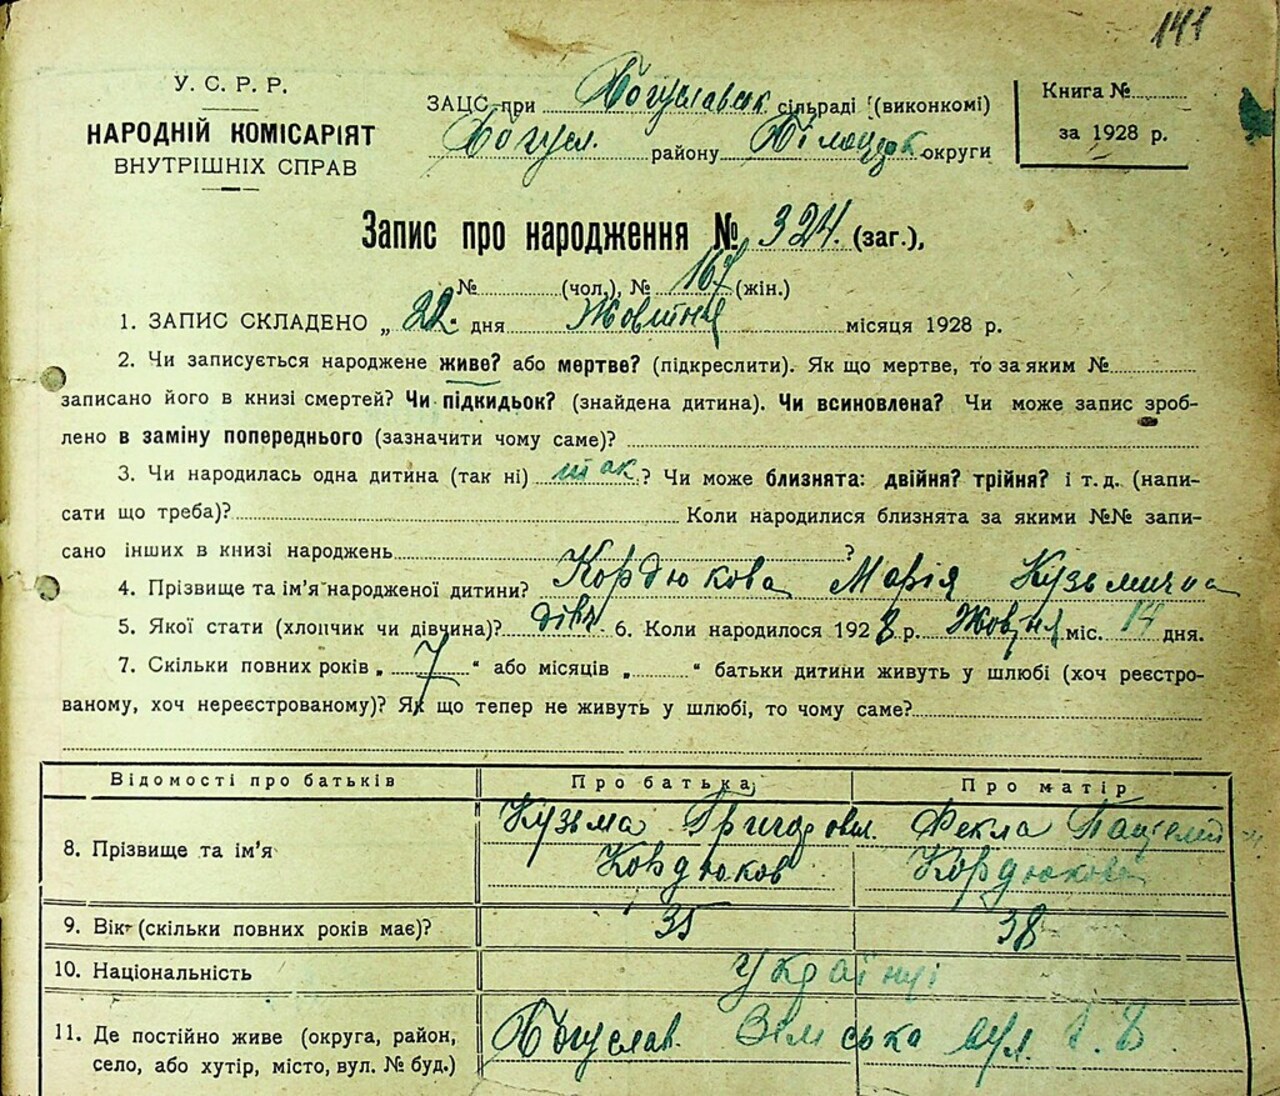 141
У. С. Р. Р.
НАРОДНІЙ КОМІСАРІЯТ
ВНУТРІШНІХ СПРАВ
ЗАЦС при Богуславськ сільраді (виконкомі)
Богусл. району Білоцерк округи
Книга №
за 1928 р.
Запис про народження № 324. (заг.),
№ (чол.), № 167 (жін.)
1. ЗАПИС СКЛАДЕНО „ 22 “ дня Жовтня місяця 1928 р.
2. Чи записується народжене живе? або мертве? (підкреслити). Як що мертве, то за яким №
записано його в книзі смертей? Чи підкидьок? (знайдена дитина). Чи всиновлена? Чи може запис зроб-
лено в заміну попереднього (зазначити чому саме)?
3. Чи народилась одна дитина (так ні) так ? Чи може близнята: двійня? трійня? і т. д. (напи-
сати що треба)? Коли народилися близнята за якими №№ запи-
сано інших в книзі народжень ?
4. Прізвище та ім’я народженої дитини? Кордюкова Марія Кузьмична
5. Якої стати (хлопчик чи дівчина)? дівч. 6. Коли народилося 1928 р. Жовтня міс. 14 дня.
7. Скільки повних років „ 7 “ або місяців „ “ батьки дитини живуть у шлюбі (хоч реєстро-
ваному, хоч нереєстрованому)? Як що тепер не живуть у шлюбі, то чому саме?
Відомості про батьків Про батька Про матір
8. Прізвище та ім’я Кузьма Григорович. Фекла
Кордюков Кордюкова
9. Вік (скільки повних років має)? 35 38
10. Національність Українці
11. Де постійно живе (округа, район, Богуслав. Земська вул.
село, або хутір, місто, вул. № буд.)